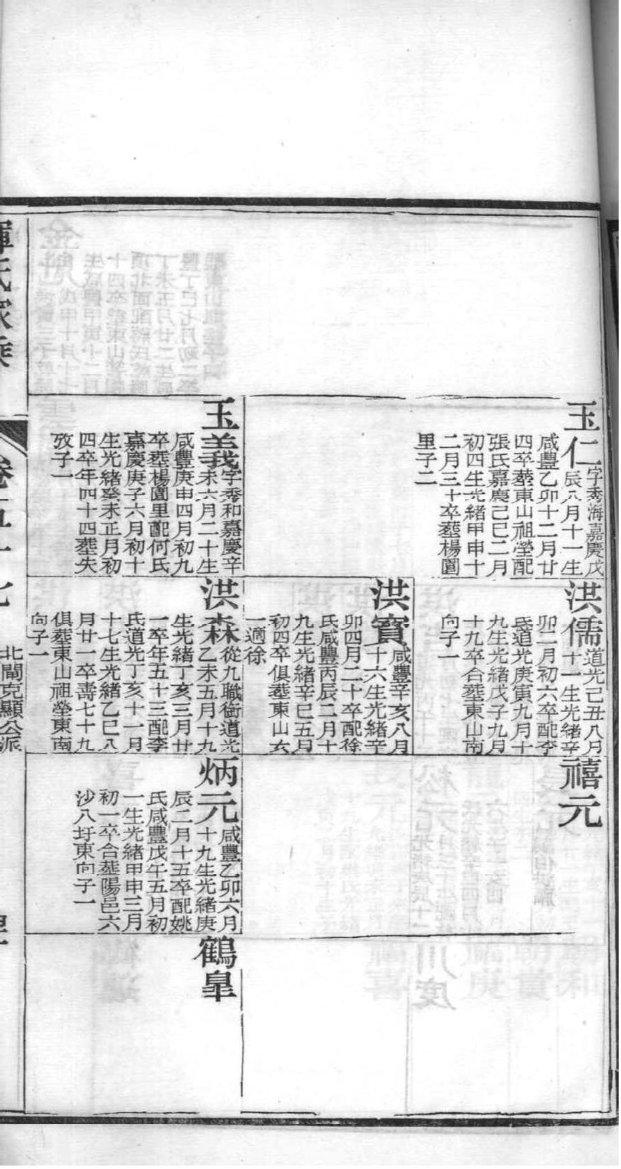 玉仁
字秀海嘉慶戊
辰八月十一生
咸豐乙卯十二月廿
四卒葬東山祖塋配
張氏嘉慶己巳二月
初四生光緒甲申十
二月三十卒葬楊園
里子二
洪儒
道光己丑八月
十一生光緒辛
卯二月初六卒配李
氏道光庚寅九月十
九生光緒戊子九月
十九卒合葬東山南
向子一
禧元
洪寶
咸豐辛亥八月
十六生光緒辛
卯四月二十卒配徐
氏咸豐丙辰二月十
九生光緒辛巳五月
初四卒俱葬東山女
一適徐
玉義
字秀和嘉慶辛
未六月二十生
咸豐庚申四月初九
卒葬楊園里配何氏
嘉慶庚子六月初十
生光緒癸未正月初
四卒年四十四葬失
攷子一
洪森
從九職銜道光
乙未五月十九
生光緒丁亥三月廿
一卒年五十三配李
氏道光丁亥十一月
十七生光緒乙巳八
月廿一卒壽七十九
俱葬東山祖塋東南
向子一
炳元
咸豐乙卯六月
十九生光緒庚
辰二月十五卒配姚
氏咸豐戊午五月初
一生光緒甲申三月
初一卒合葬陽邑六
沙八圩東向子一
鶴臯
氏家乘
卷五十七
北門克顯公派